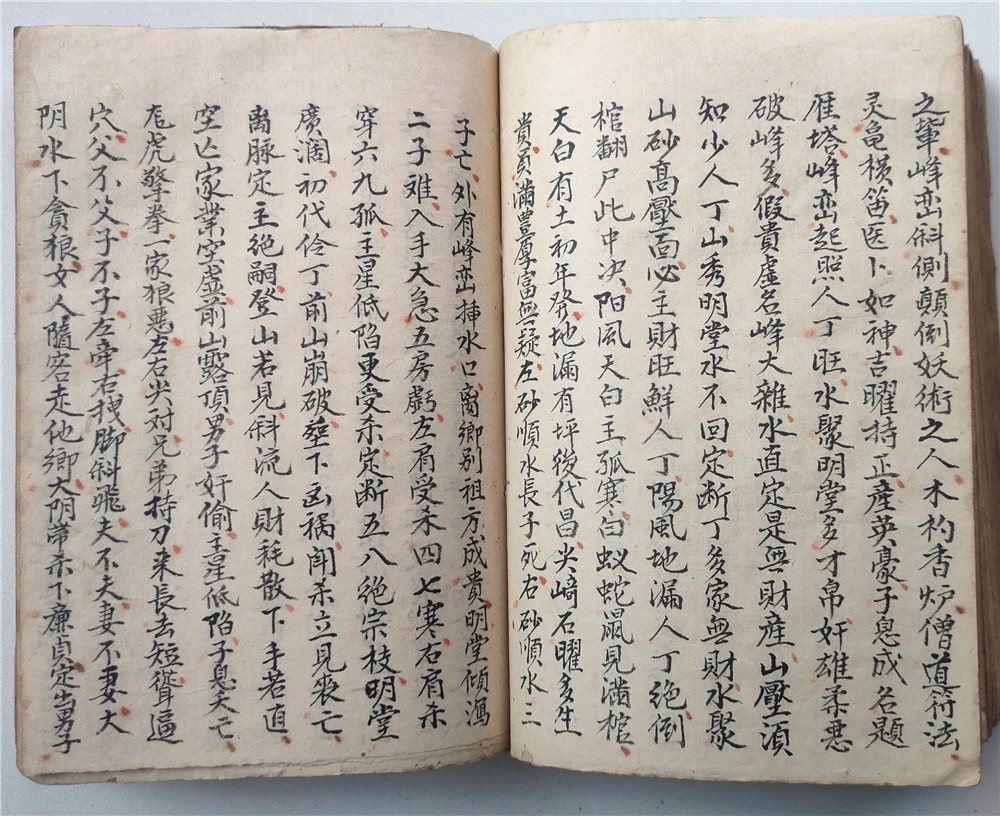 之輩峰峦斜側顛倒妖術之人木杓香炉僧道符法
灵龟横笛医卜如神吉曜持正產英豪子息成名題
雁塔峰峦起照人丁旺水聚明堂多才帛奸雄柔悪
破峰多假貴虛名峰大雜水直定是無財産山壓頂
知少人丁山秀明堂水不回定断丁多家無財水聚
山砂高壓面必主財旺鮮人丁陽風地漏人丁绝倒
棺翻尸此中决阳風天白主孤寒白蚁蛇鼠見滿棺
天白有土初年発地漏有坪後代昌尖﨑石曜多生
貴員滿豊厚富無疑左砂順水長子死右砂順水三
子亡外有峰峦揷水口离鄉别祖方成貴明堂傾瀉
二子难入手大急五房虧左肩受杀四七寒右肩杀
穿六九孤主星低陷更受杀定断五八绝宗枝明堂
廣濶初代伶丁前山崩破塟下凶禍闖杀立見丧亡
离脉定主绝嗣登山若見斜流人財耗散下手若直
空亡家業空虛前山露頂男子奸偷主星低陷子息夭亡
虎擎拳一家狼悪左右尖対兄弟持刀来長去短聳逼
穴父不父子不子左牵右拽脚斜飛夫不夫妻不妻大
阴水下貪狼女人隨客走他鄉大阴帶杀下廉貞定出男子